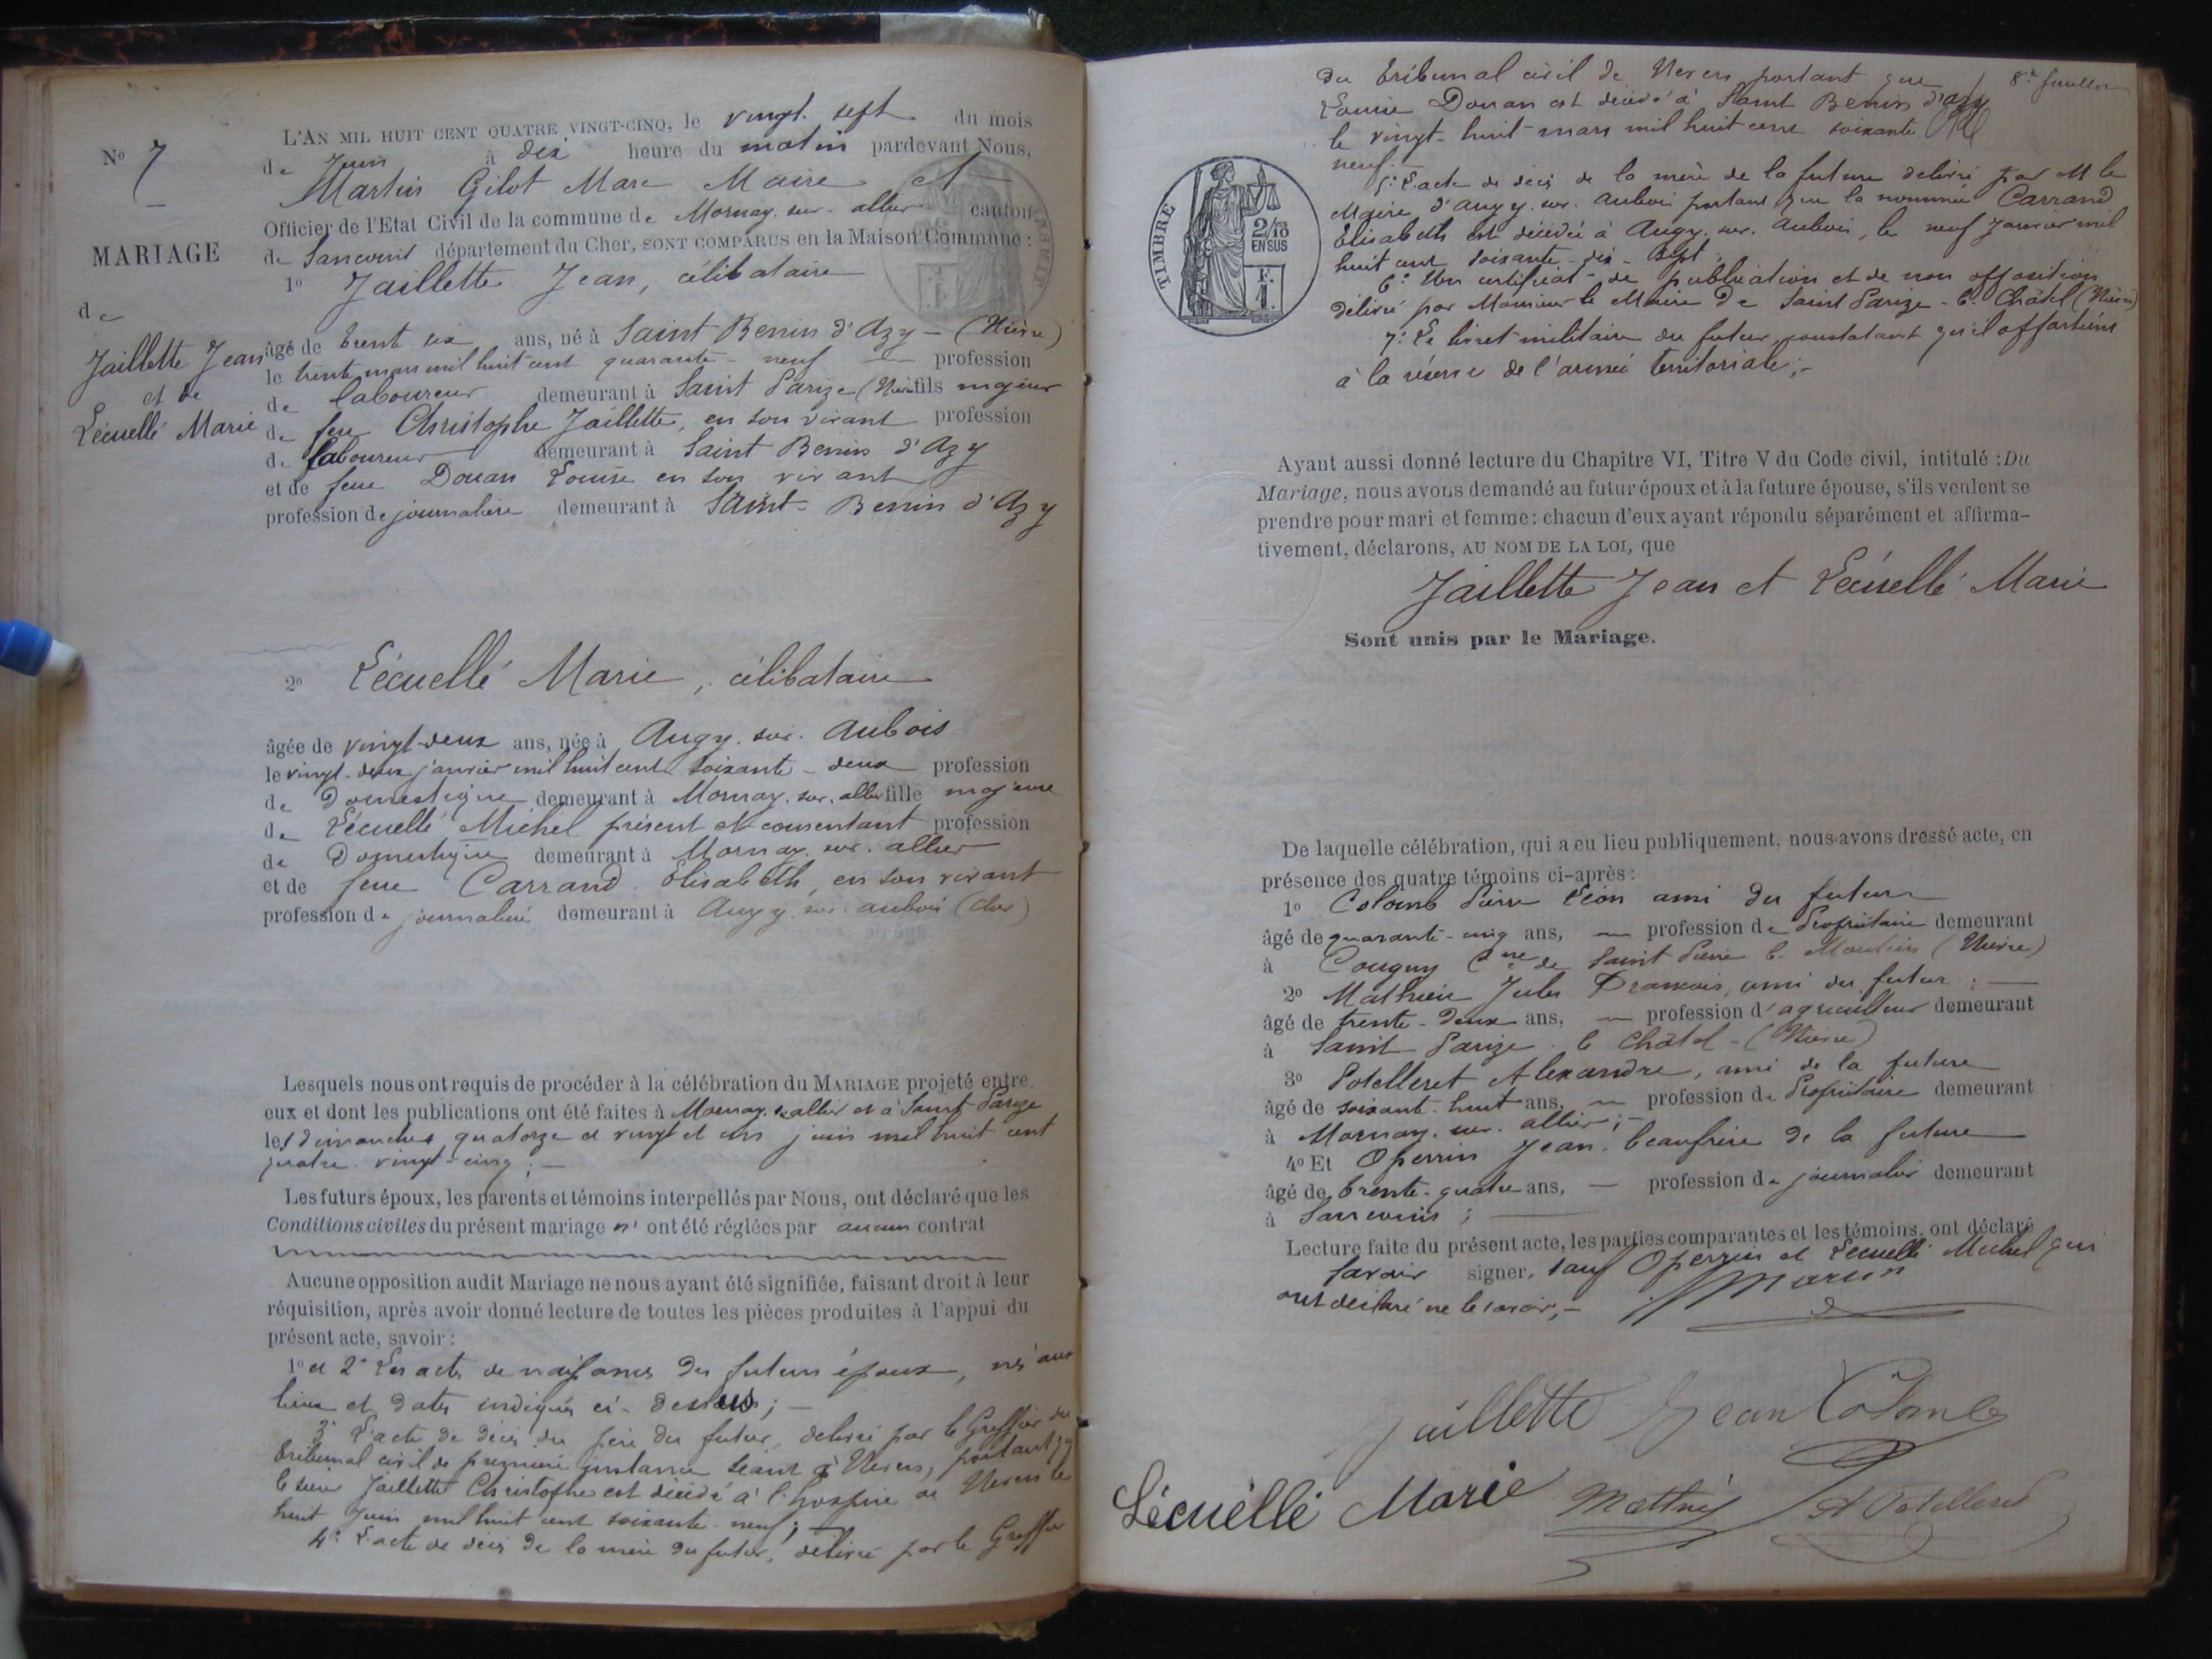 L'AN MIL HUIT CENT QUATRE VINGT-CINQ, le vingt sept du mois
de Juin à dix heure du matin pardevant Nous,
Martin Gilot Marc Maire et
Officier de l'Etat Civil de la commune de Mornay-sur-allier canton
de Sancoins département du Cher, SONT COMPARUS en la Maison Commune :
1º Jaillette Jean, célibataire
Nº 7
MARIAGE
de
Jaillette Jean
et de
Lécuellé Marie
âgé de trente six ans, né à Saint Benin d'Azy - (Nièvre)
le trente mars mil huit cent quarante-neuf profession
de laboureur demeurant à Saint Parize (Nièvre) fils majeur
de feu Christophe Jaillette, en son vivant profession
de laboureur demeurant à Saint Benin d'Azy
et de feue Douan Louise en son vivant
profession de journalière demeurant à Saint-Benin d'Azy
2º Lécuellé Marie, célibataire
âgée de vingt-deux ans, née à Augy-sur-Aubois
le vingt-deux janvier mil huit cent soixante-deux profession
de Domestique demeurant à Mornay-sur-allier fille majeure
de Lécuellé Michel présent et consentant profession
de Domestique demeurant à Mornay-sur-allier
et de feue Carrand Elisabeth, en son vivant
profession de journalière demeurant à Augy-sur-aubois (Cher)
Lesquels nous ont requis de procéder à la célébration du MARIAGE projeté entre
eux et dont les publications ont été faites à Mornay-s-allier et à Saint Parize
les dimanches quatorze et vingt et un juin mil huit cent
quatre-vingt-cinq ; -
Les futurs époux, les parents et témoins interpellés par Nous, ont déclaré que les
Conditions civiles du présent mariage n' ont été réglées par aucun contrat
Aucune opposition audit Mariage ne nous ayant été signifiée, faisant droit à leur
réquisition, après avoir donné lecture de toutes les pièces produites à l'appui du
présent acte, savoir :
1º et 2º Les actes de naissances des futurs époux, nés aux
lieux et dates indiqués ci-dessus ; -
3º L'acte de décès du père du futur, délivré par le Greffier du
tribunal civil de première instance séant à Nevers, portant que
le sieur Jaillette Christophe est décédé à l'hospice de Nevers le
huit Juin mil huit cent soixante-neuf ; -
4º L'acte de décès de la mère du futur, délivré par le Greffier
du tribunal civil de Nevers portant que
8e feuillet
Louise Douan est décédé à Saint Benin d'azy
le vingt-huit mars mil huit cent soixante
neuf -
5º L'acte de décès de la mère de la future délivré par M le
Maire d'augy-sur-aubois portant que la nommée Carrand
Elisabeth est décédée à Augy-sur-Aubois, le neuf Janvier mil
huit cent soixante-dix-sept ;
6º Un certificat de publication et de non opposition
délivré par Monsieur le Maire de Saint Parize-le-Châtel (Nièvre)
7º Le livret militaire du futur, constatant qu'il appartient
à la réserve de l'armée territoriale ; -
TIMBRE
2/10
EN SUS
F.
1.
Ayant aussi donné lecture du Chapitre VI, Titre V du Code civil, intitulé : Du
Mariage, nous avons demandé au futur époux et à la future épouse, s'ils veulent se
prendre pour mari et femme : chacun d'eux ayant répondu séparément et affirma-
tivement, déclarons, AU NOM DE LA LOI, que
Jaillette Jean et Lécuellé Marie
Sont unis par le Mariage.
De laquelle célébration, qui a eu lieu publiquement, nous avons dressé acte, en
présence des quatre témoins ci-après :
1º Colomb Pierre Léon ami du futur
âgé de quarante-cinq ans, — profession de Propriétaire demeurant
à Cougny Cne de Saint Pierre le Moutier (Nièvre)
2º Mathieu Jules François, ami du futur ; —
âgé de trente-deux ans, — profession d'agriculteur demeurant
à Saint Parize-le Châtel - (Nièvre)
3º Potelleret Alexandre, ami de la future
âgé de soixante-huit ans, — profession de Propriétaire demeurant
à Mornay-sur-allier ; -
4º Et Operrin Jean, beaufrère de la future
âgé de trente-quatre ans, — profession de journalier demeurant
à Sancoins ; —
Lecture faite du présent acte, les parties comparantes et les témoins, ont déclaré
savoir signer, sauf Operrin et Lécuellé Michel qui
ont déclaré ne le savoir ; -
Martin
Jaillette Jean Colomb
Lécuellé Marie Mathieu A Potelleret